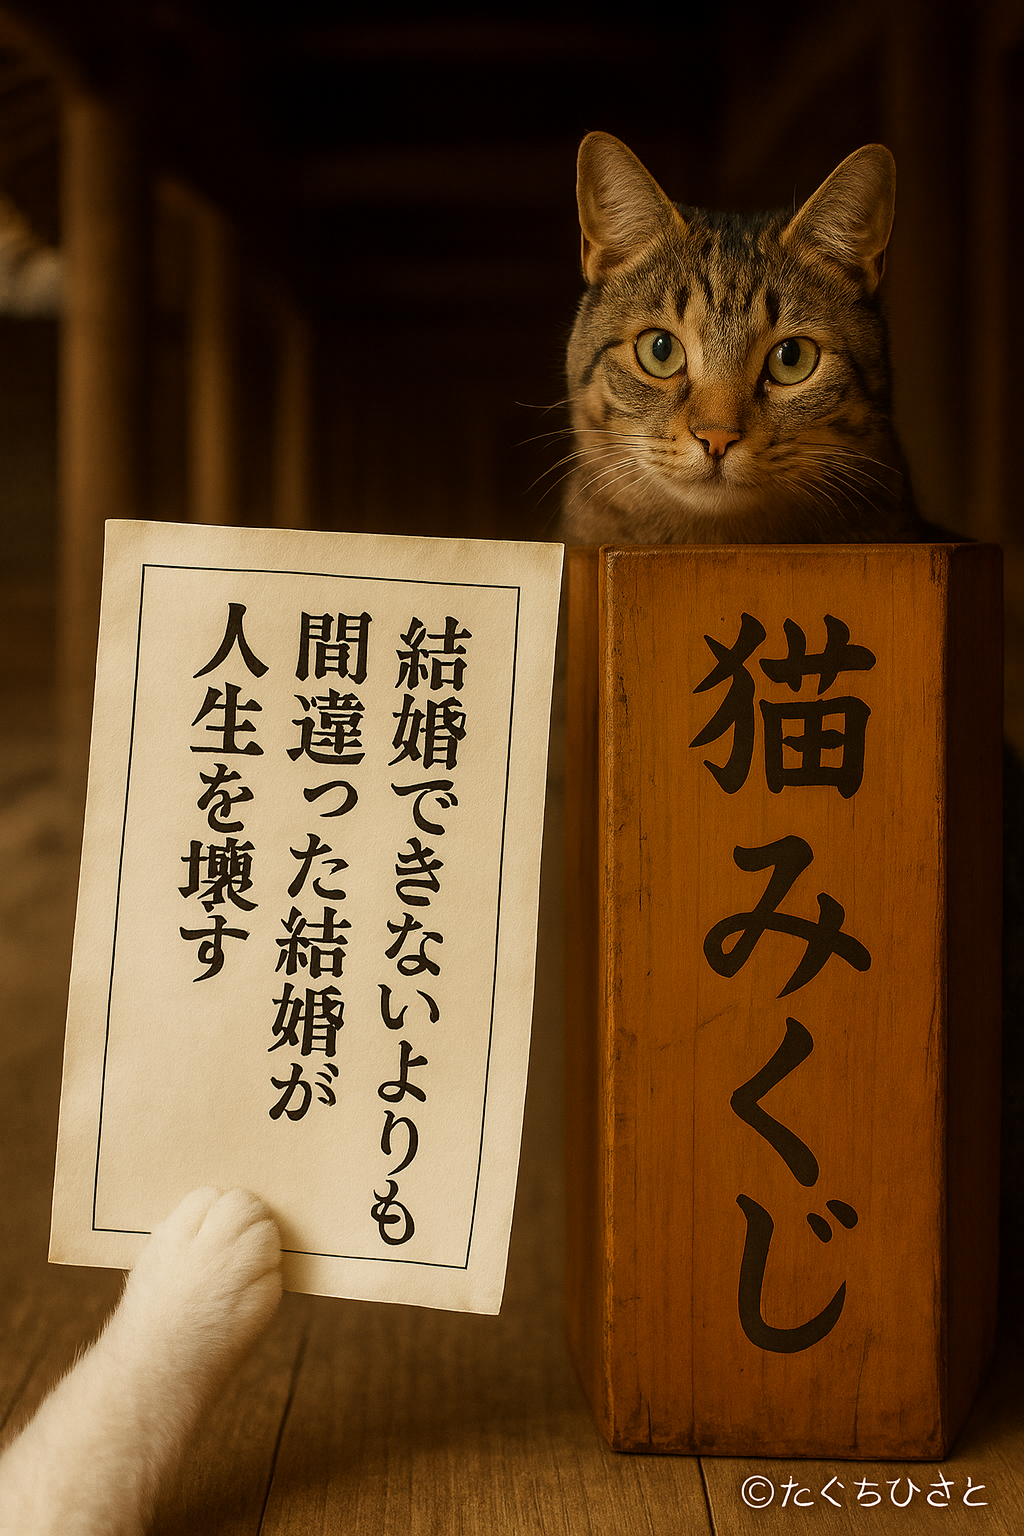 結婚できないよりも
間違った結婚が
人生を壊す
猫みくじ
©たぐちひさと